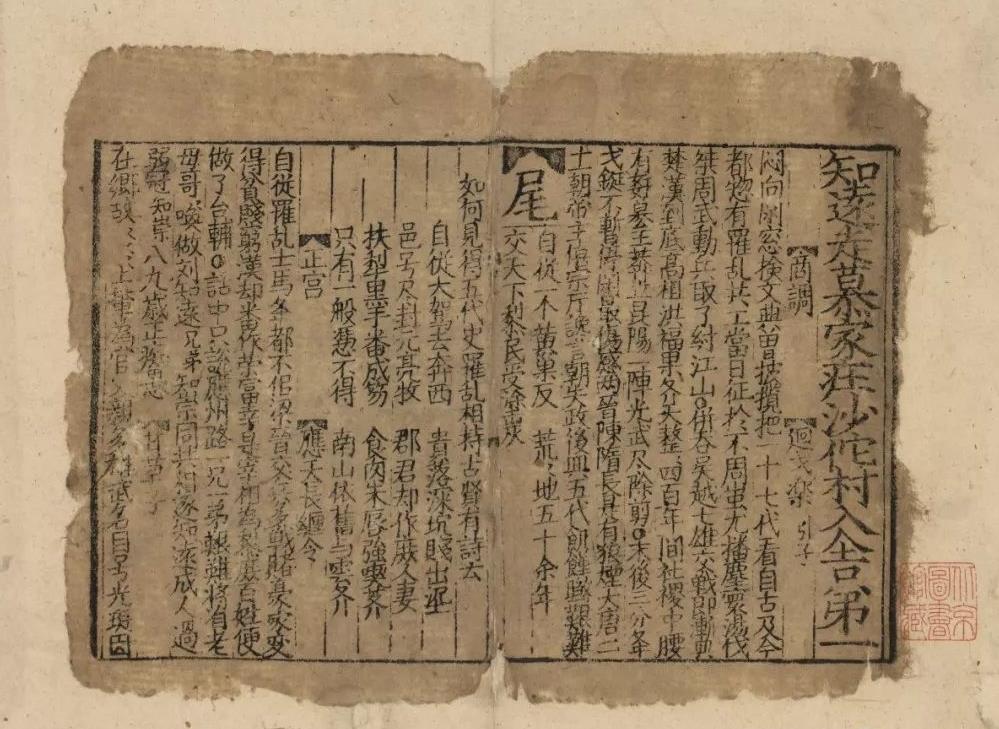 知遠走慕家莊沙佗村入舍第一
商調 迴戈楽 引子
悶向閑窓検文典曽披攬把一十七代看自古及今
都惣有羅乱共工當日征於不周蚩尤播塵寰湯伐
桀周武動兵取了紂江山○併吞吳越七雄交戰即漸興
楚漢到底高祖洪福果齐天整四百年間社稷中腰
有奸篡王莽立昆陽一陣光武尽除剪○末後三分各
戈鋋不暫停閑最傷感兩晉陳隋長是有狼煙大唐二
十一朝帝主僖宗听讒言朝失政後興五代飢饉艱難
尾 自從一个黃巢反 荒荒地五十余年
交天下黎民受塗炭
如何見得五代史羅乱相持古賢有詩云
自從大駕去奔西 貴落深坑賤出泥
邑号尽封元亮牧 郡君却作庶人妻
扶犁黑手番成笏 食肉朱唇強喫虀
只有一般憑不得 南山依舊与雲齐
正宮 應天長纏令
自從羅乱士馬舉都不似梁晉交
得貧賤窮漢却番作榮富幸是宰相為黎庶百姓便
做了台輔○話中只說應州路一兄一弟艱難將自老
母哥喚做刘知遠兄弟知崇同共相逐知遠成人過
弱冠知崇八九歲正痴憨
在鄉故